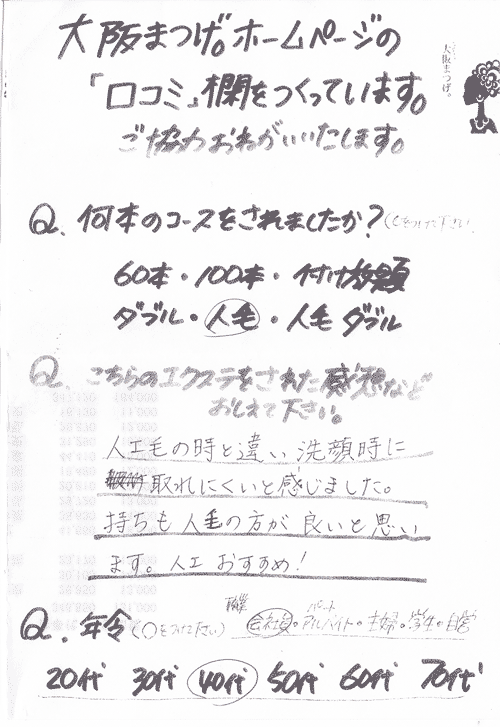 大阪まつげ。ホームページの
「口コミ」欄をつくっています。
ご協力おねがいいたします。
大阪まつげ。
Q. 何本のコースをされましたか?(○をつけて下さい
60本・100本・付け放題
ダブル・人毛・人毛ダブル
Q. こちらのエクステをされた感想など
おしえて下さい。
人工毛の時と違い洗顔時に
取れにくいと感じました。
持ちも人毛の方が良いと思い
ます。人工おすすめ!
職業
パート
Q. 年令(○をつけて下さい) 会社員・アルバイト・主婦・学生・自営
20代 30代 40代 50代 60代 70代